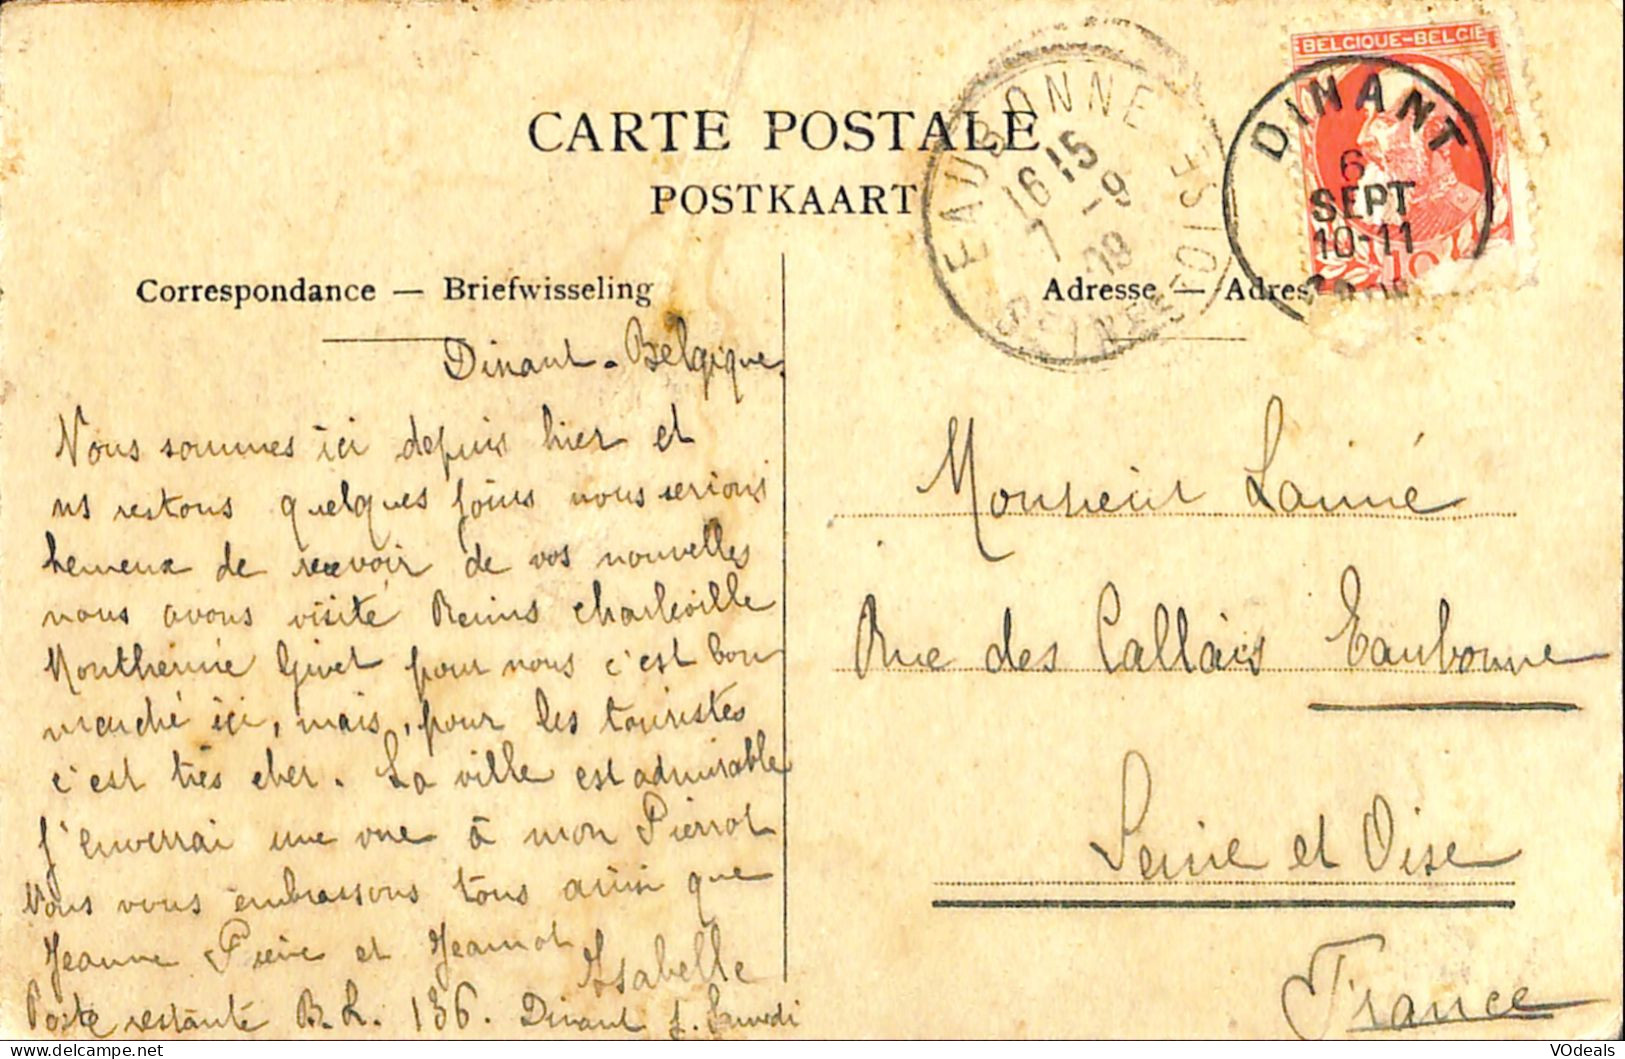 BELGIQUE-BELGIË
DINANT
6
SEPT
10-11
10
EAUBONNE
16 15
7 -9
09
SEINE-ET-OISE
CARTE POSTALE
POSTKAART
Correspondance — Briefwisseling
Adresse — Adres
Dinant - Belgique
Nous sommes ici depuis hier et
ns restons quelques jours nous serions
heureux de recevoir de vos nouvelles
nous avons visité Reims Charleville
Monthermé Givet pour nous c'est bon
marché ici, mais, pour les touristes
c'est très cher. La ville est admirable
J'enverrai une vue à mon Pierrot
Nous vous embrassons tous ainsi que
Jeanne Pierre et Jeannot
Isabelle
Poste restante B.L. 136. Dinant
Monsieur Lainné
Rue des Callais Eaubonne
Seine et Oise
France
VOdeals